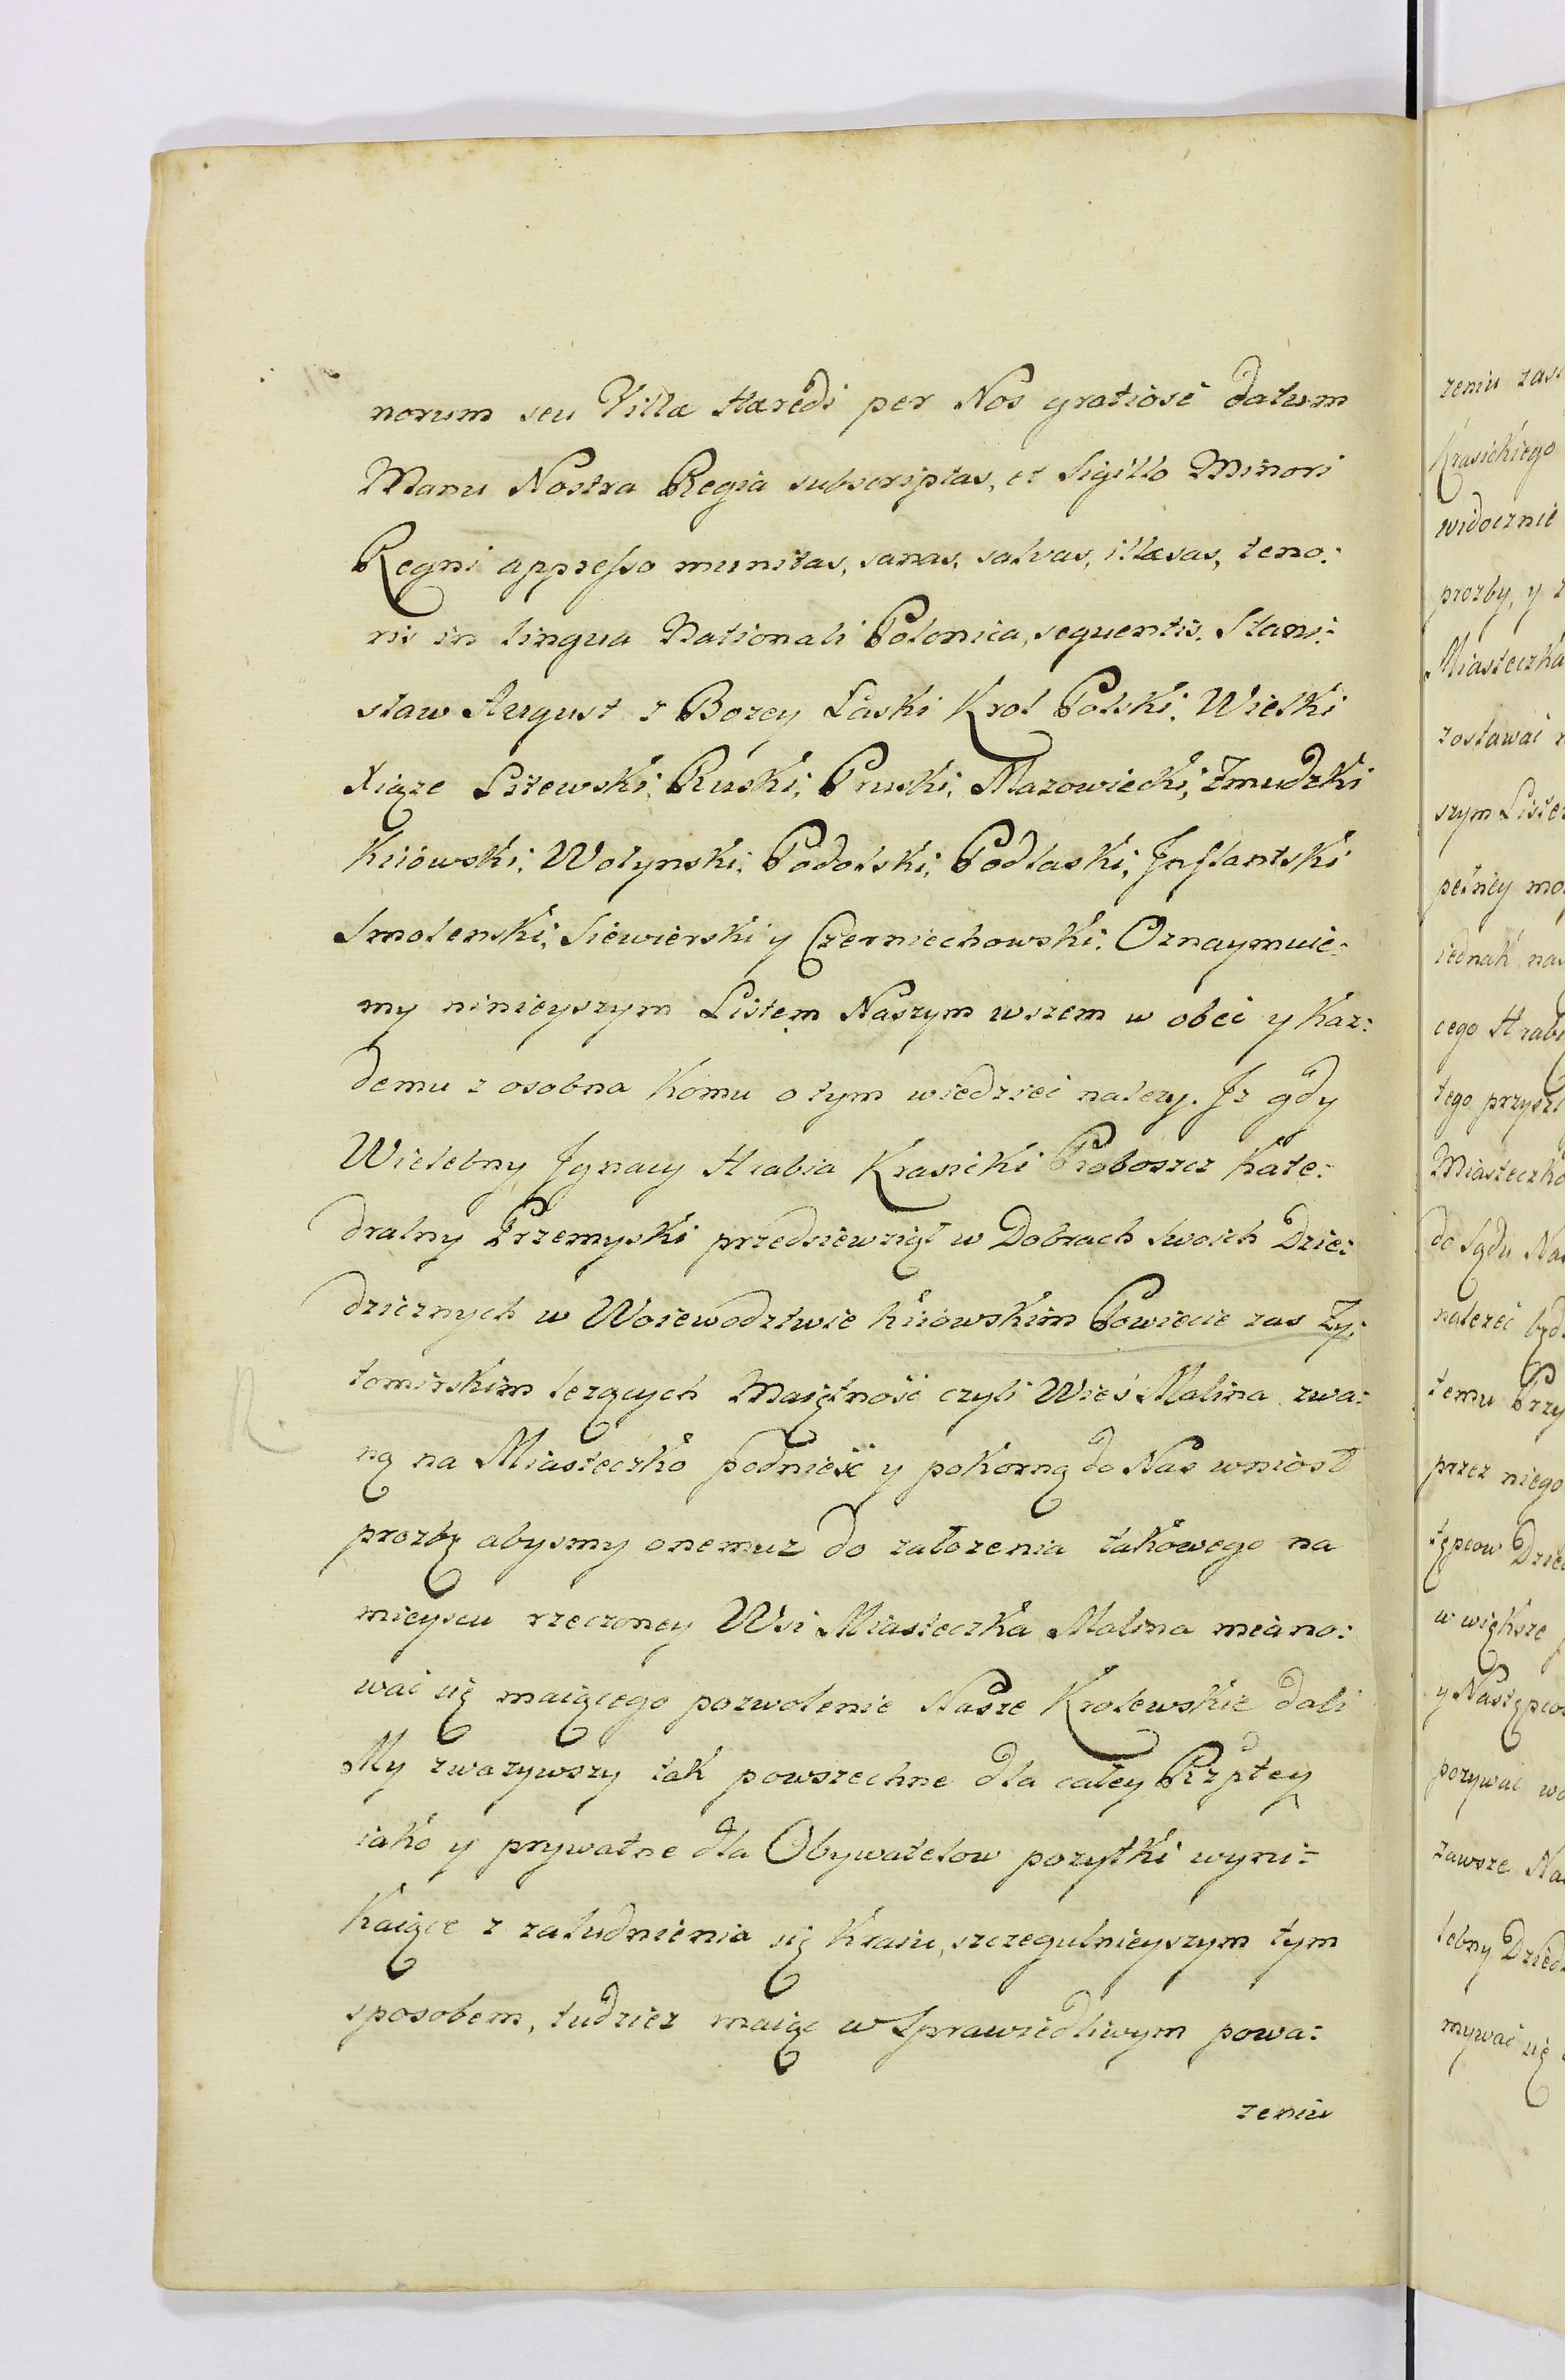 norum seu Villæ Hæredi per Nos gratiosè datum
Manu Nostra Regia subscriptas, et Sigillo Minori
Regni appresso munitas, sanas, salvas, illæsas, teno:
ris in lingua Nationali Polonica, sequentis. Stani:
sław August z Bozey Łaski Krol Polski, Wielki
Xiąze Litewski, Ruski, Pruski, Mazowiecki, Zmudzki
Kiiowski, Wołynski, Podolski, Podlaski, Inflantski
Smolenski, Siewierski y Czerniechowski. Oznaymuie:
my ninieyszym Listem Naszym wszem w obec y Kaz:
demu z osobna Komu o tym wiedzieć nalezy. Iz gdy
Wielebny Ignacy Hrabia Krasicki Proboszcz Kate:
dralny Przemyski przedsiewziął w Dobrach Swoich Dzie:
dzicznych w Woiewodztwie Kiiowskim Powiecie zas Zy:
tomirskim lezących Maiętność czyli Wieś Malina zwa:
ną na Miasteczko podnieść y pokorną do Nas wniosł
prozbę abysmy onemuz do załozenia takowego na
mieyscu rzeczoney Wsi Miasteczka Malina miano:
wać się maiącego pozwolenie Nasze Krolewskie dali
My zwazywszy tak powszechne dla całey Rzptey
iako y prywatne dla Obywatelow pozytki wyni:
kaiące z zaludnienia się Kraiu, szczegulnieyszym tym
sposobem, tudziez maiąc w Sprawiedliwym powa:
zeniu
R.
zeniu
Krasickiego
widocznie
prozby, y
Miasteczka
zostawać
szym Liste
pełney mo
iednak na
cego Hrab
tego przysz
Miasteczko
do Sądu Na
nalezeć będ
temu Przy
przez niego
tępcow Dzie
w większe
y Następco
pozywać
zawsze Na
lebny Dzied
mywać się